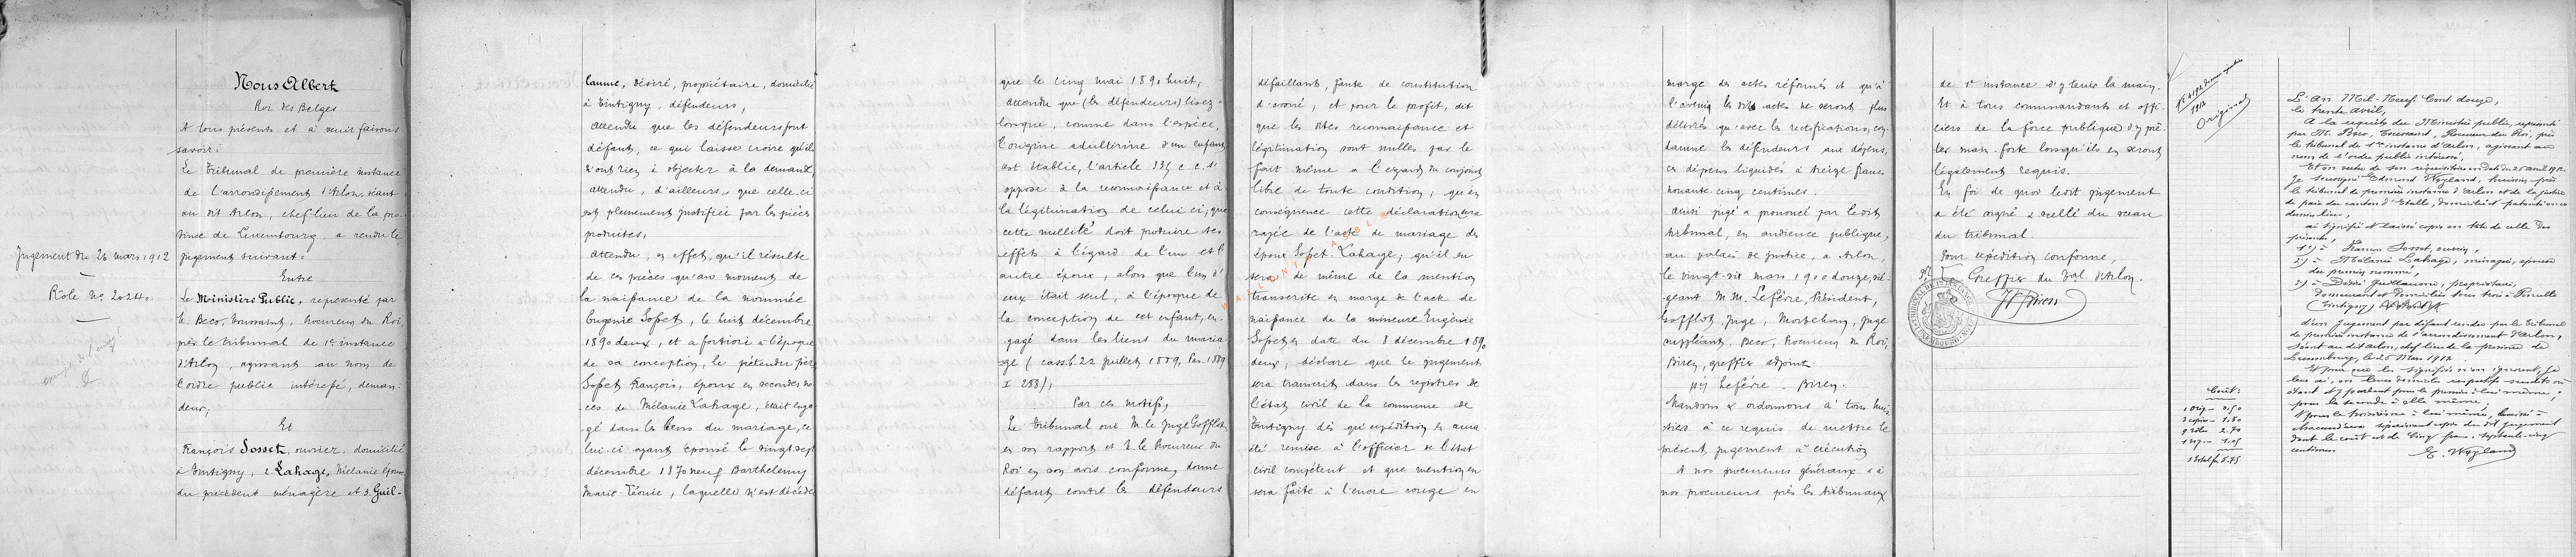 Nous Albert
Roi des Belges
A tous présents et à venir faisons
savoir :
Le Tribunal de première instance
de l'arrondissement d'Arlon, séant
au dit Arlon, chef-lieu de la pro-
vince de Luxembourg, a rendu le
Jugement du 26 mars 1912
jugement suivant :
Entre
Rôle No 2024.
Le Ministère Public, représenté par
Mr Beco, Toussaint, Procureur du Roi,
près le tribunal de 1re instance
d'Arlon, agissant au nom de
l'ordre public intéressé, deman-
deur,
Et
François Sosset, ouvrier, domicilié
à Tintigny, 2. Lahage, Mélanie épouse
du précédent ménagère et 3. Guil-
laume, Désiré, propriétaire, domicilié
à Tintigny, défendeurs,
attendu que les défendeurs font
défaut, ce qui laisse croire qu'ils
n'ont rien à objecter à la demande,
attendu, d'ailleurs, que celle-ci
est pleinement justifiée par les pièces
produites,
attendu, en effet, qu'il résulte
de ces pièces qu'au moment de
la naissance de la nommée
Eugénie Sosset, le huit décembre
1890 deux, et a fortiori à l'époque
de sa conception, le prétendu père
Sosset François, époux en secondes no-
ces de Mélanie Lahage, était enga-
gé dans les liens du mariage, ce-
lui-ci ayant épousé le vingt-sept
décembre 1870 neuf Barthelemy
Marie-Léonie, laquelle n'est décédée
que le cinq mai 1890 huit,
attendu que (les défendeurs) lisez :
lorsque, comme dans l'espèce,
l'origine adultérine d'un enfant
est établie, l'article 335 c. c. s'
oppose à la reconnaissance et à
la légitimation de celui-ci, que
cette nullité doit produire ses
effets à l'égard de l'un et l'
autre époux, alors que l'un d'
eux était seul, à l'époque de
la conception de cet enfant, en-
gagé dans les liens du maria-
ge (cass. b. 22 juillet 1889, Pas. 1889
I 288),
Par ces motifs,
Le Tribunal ouï M. le Juge Sofflot
en son rapport et M. le Procureur du
Roi en son avis conforme, donne
défaut contre les défendeurs
défaillants, faute de constitution
d'avoué, et pour le profit, dit
que les dites reconnaissance et
légitimation sont nulles par le
fait même à l'égard du conjoint
libre de toute condition, qu'en
conséquence cette déclaration sera
rayée de l'acte de mariage des
époux Sosset Lahage, qu'il en
sera de même de la mention
transcrite en marge de l'acte de
naissance de la mineure Eugénie
Sosset en date du 8 décembre 1890
deux, déclare que le jugement
sera transcrit dans les registres de
l'état civil de la commune de
Tintigny dès qu'expédition en aura
été remise à l'officier de l'état
civil compétent et que mention en
sera faite à l'encre rouge en
marge des actes réformés et qu'à
l'avenir les dits actes ne seront plus
délivrés qu'avec les rectifications, con-
damne les défendeurs aux dépens,
ces dépens liquidés à treize francs
nonante cinq centimes.
Ainsi jugé et prononcé par le dit
tribunal, en audience publique,
au palais de justice, à Arlon,
le vingt-six mars 1900 douze, sié-
geant M. M. Lefèvre, Président,
Sofflot, Juge, Mortehan, Juge
suppléant, Beco, Procureur du Roi,
Biren, greffier adjoint.
(s) Lefèvre - Biren.
Mandons & ordonnons à tous huis-
siers à ce requis de mettre le
présent jugement à exécution
A nos procureurs généraux & à
nos procureurs près les tribunaux
de 1re instance d'y tenir la main.
Et à tous commandants et offi-
ciers de la force publique d'y prê-
ter main-forte lorsqu'ils en seront
légalement requis.
En foi de quoi le dit jugement
a été signé & scellé du sceau
du tribunal.
Pour expédition conforme,
Le Greffier du Tal d'Arlon.
Original
L'An Mil-Neuf Cent douze,
le trente avril,
A la requête du Ministère public, représenté
par M. Beco, Toussaint, Procureur du Roi, près
le tribunal de 1re instance d'Arlon, agissant au
nom de l'ordre public intéressé,
Et en vertu de son réquisitoire en date du 25 avril 1912
Je soussigné Edmond Weyland, huissier près
le tribunal de première instance d'Arlon et de la justice
de paix du canton d'Etalle, domicilié et patenté en ce
dernier lieu,
ai signifié et laissé copie en tête de celle des
présentes,
1°) à François Sosset, ouvrier,
2°) à Mélanie Lahage, ménagère, épouse
du premier nommé,
3°) à Désiré Guillaume, propriétaire,
demeurant et domiciliés tous trois à Poncelle
(Tintigny)
d'un jugement par défaut rendu par le tribunal
de première instance de l'arrondissement d'Arlon,
séant au dit Arlon, chef-lieu de la province de
Luxembourg, le 26 Mars 1912.
Et pour que les signifiés n'en ignorent, je
leur ai, en leurs domiciles respectifs susdits où
étant et y parlant pour le premier à lui-même,
pour la seconde à elle-même,
et pour le troisième à lui-même, laissé à
chacun d'eux séparément copie du dit jugement
dont le coût est de cinq francs, septante-cinq
centimes.
E. Weyland
Coût :
1 Orig - 0.50
3 copies - 1.50
9 rôles 2.70
1 Total fr 5.75